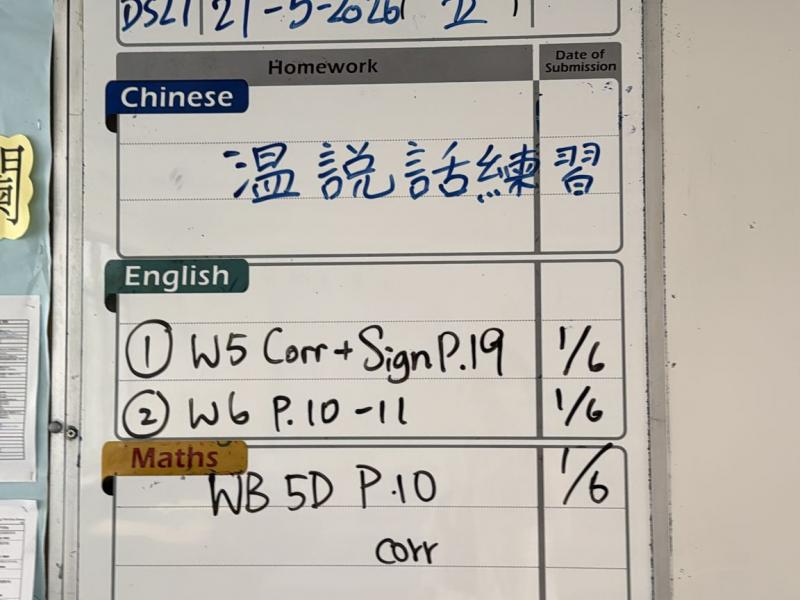 21-5-2026
Homework
Date of Submission
Chinese
温說話練習
English
① W5 Corr + Sign P.19 1/6
② W6 P.10-11 1/6
Maths
WB 5D P.10 1/6
corr